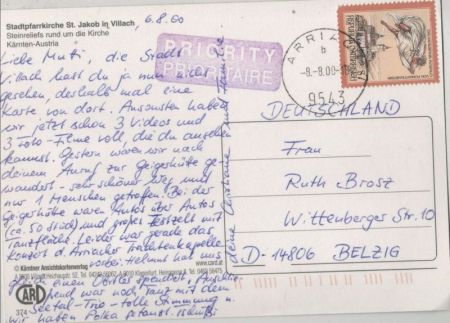 Stadtpfarrkirche St. Jakob in Villach
Steinreliefs rund um die Kirche
Kärnten-Austria
6.8.00
PRIORITY
PRIORITAIRE
ARRIACH
b
-8.-8.00
9543
REPUBLIK
Liebe Mutti, die Stadt
Villach hast du ja nun nicht
gesehen, deshalb mal eine
Karte von dort. Ansonsten haben
wir jetzt schon 3 Videos und
3 Foto-Filme voll, die du anschauen
kannst. Gestern waren wir nach
deinem Anruf zur Geigerhütte ge-
wandert - sehr schöner Weg und
nur 1 Menschen getroffen. Bei der
Geigerhütte waren Autos über Autos
(ca. 50 Stück) und großes Festzelt mit
Tanzfläche. Leider war gerade das
Konzert d. Arriacher Trachtenkapelle
vorbei. Helmut hat uns
gleich einen Vortes spendiert,
war noch Tanz mit dem
Seetal-Trio - tolle Stimmung u.
wir haben Polka getanzt.
deine Christiane und Familie
DEUTSCHLAND
Frau
Ruth Brosz
Wittenberger Str. 10
D-14806 BELZIG
© Kärntner Ansichtskartenverlag
www.card.at
CARD
374